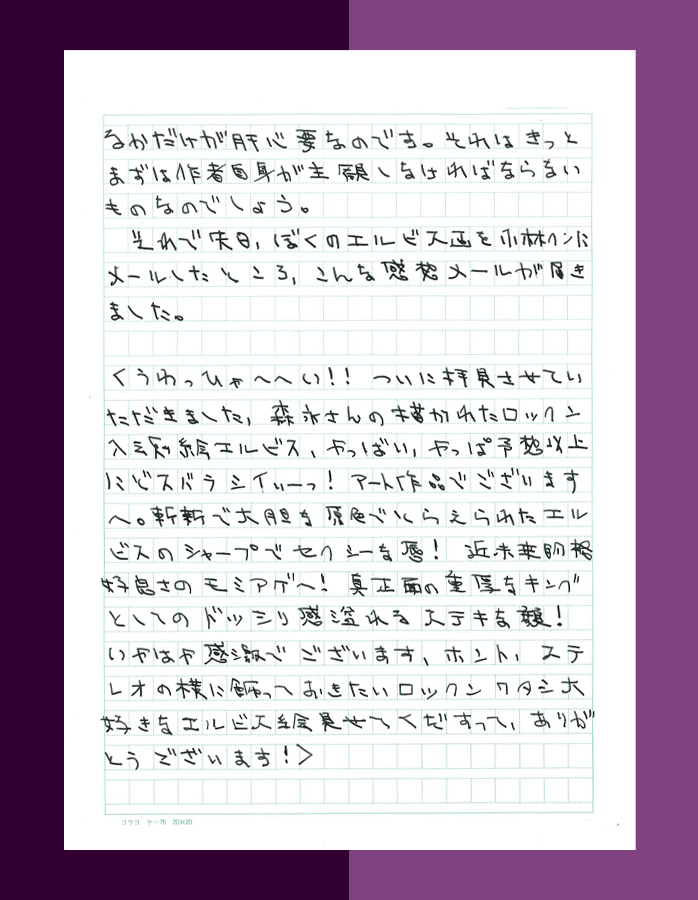 るかだけが肝心要なのです。それはきっと
まずは作者自身が主願しなければならない
ものなのでしょう。
それで先日、ぼくのエルビス画を小林クンに
メールしたところ、こんな感想メールが届き
ました。
くうわっひゃ〜〜い!! ついに拝見させてい
ただきました、森永さんの描かれたロックン
入込絵エルビス、やっぱい、やっぱ予想以上
にビスバラシイぃーっ! アート作品でございます
〜。斬新で大胆な原色でいろえられたエル
ビスのシャープでセクシーな唇! 近未来的格
好良さのモミアゲ〜! 真正面の重厚なキング
としてのドッシリ感溢れるステキな顔!
いやはや感激でございます、ホント、ステ
レオの横に飾っておきたいロックン ワタシ大
好きなエルビス絵見せてくだすって、ありが
とうでございます!>
コクヨ ケー75 20×20